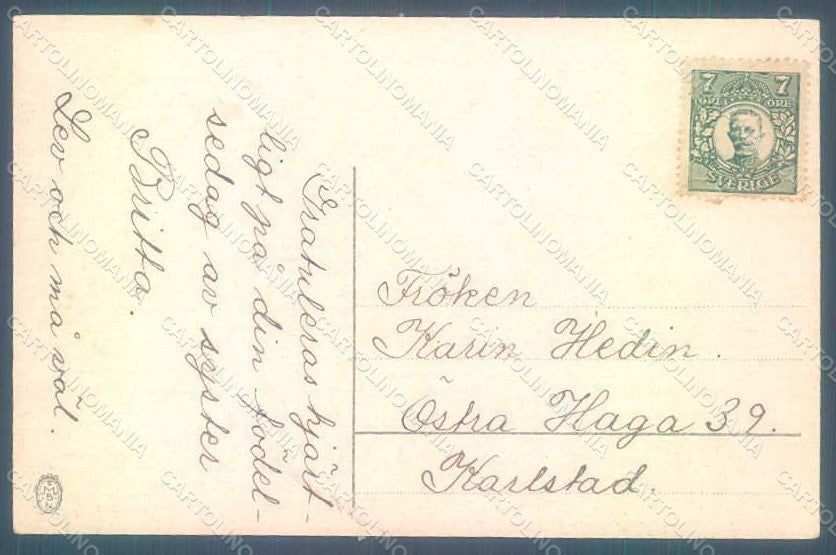 Gratuleras hjärt-
ligt på din födel-
sedag av syster
Britta.
Lev och må väl.
7 7
ÖRE ÖRE
SVERIGE
Fröken
Karin Hedin.
Östra Haga 39.
Karlstad.
CARTOLINOMANIA